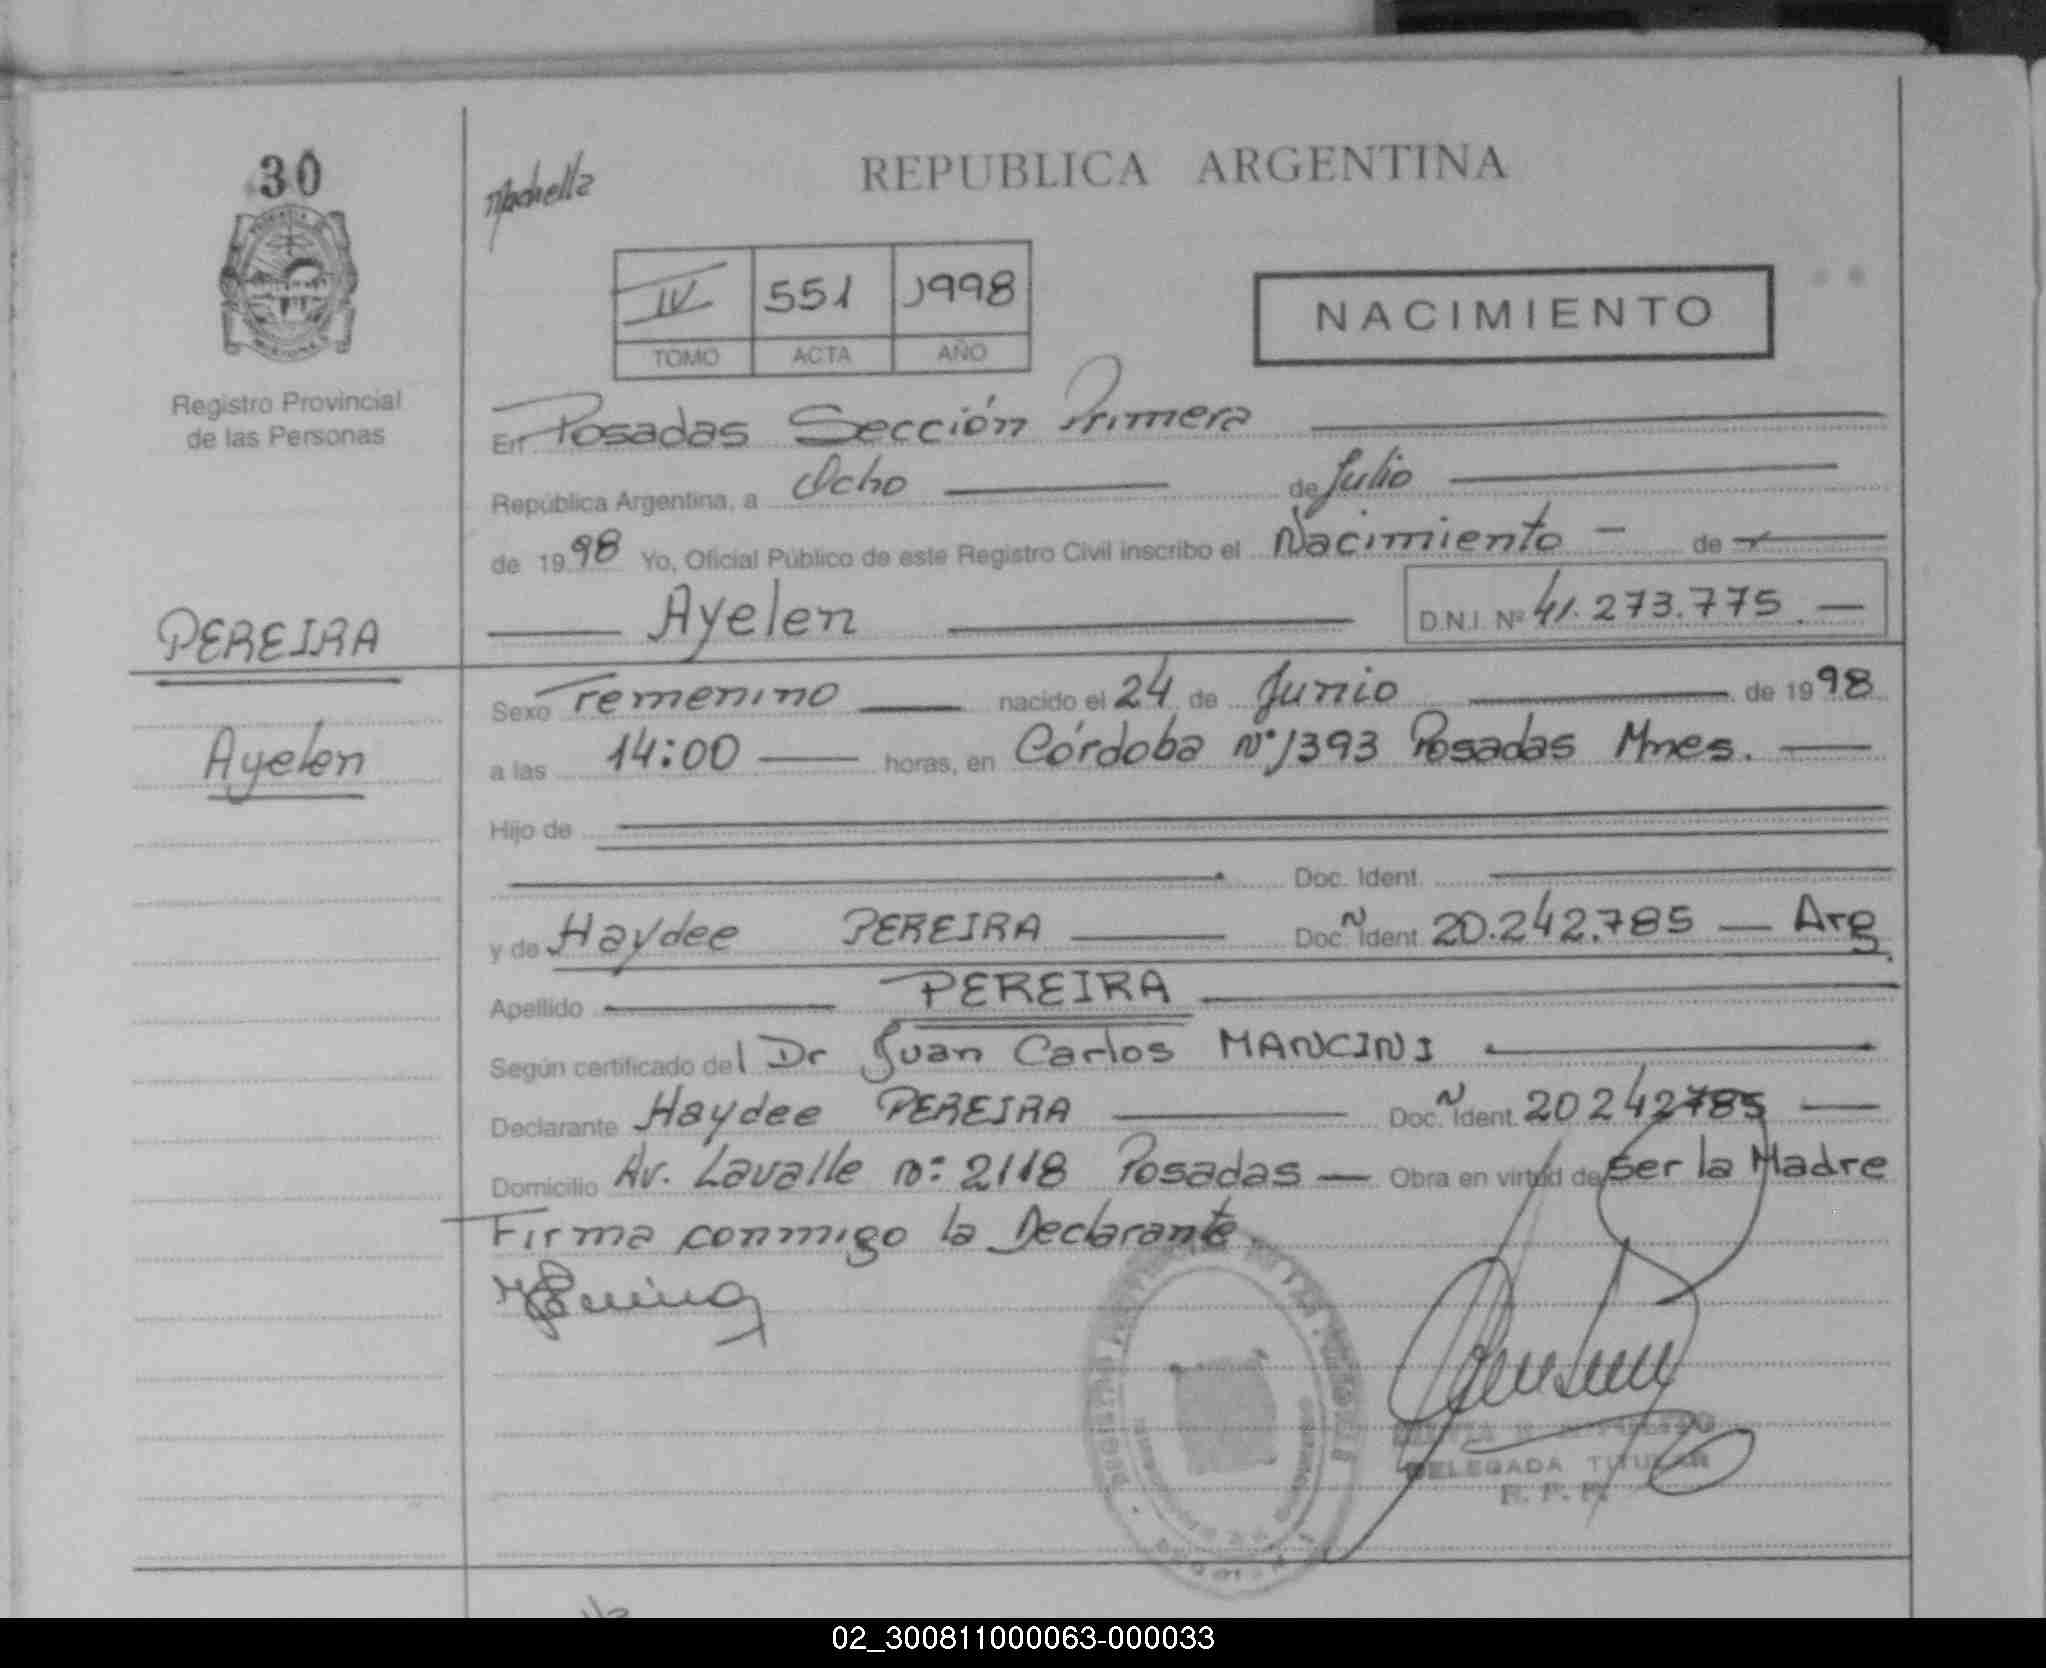 30
REPUBLICA ARGENTINA
IV 551 1998
TOMO ACTA AÑO
NACIMIENTO
Registro Provincial
de las Personas
En Posadas Sección Primera
República Argentina, a Ocho de Julio
de 1998 Yo, Oficial Público de este Registro Civil inscribo el Nacimiento - de
Ayelen D.N.I. Nº 41.273.775. —
PEREIRA
Ayelen
Sexo Femenino nacido el 24 de Junio de 1998
a las 14:00 horas, en Córdoba Nº 1393 Posadas Mnes.
Hijo de
Doc. Ident.
y de Haydee PEREIRA Doc. Ident. 20.242.785 — Arg.
Apellido PEREIRA
Según certificado del Dr Juan Carlos MANCINI
Declarante Haydee PEREIRA Doc. Ident. 20242785 —
Domicilio Av. Lavalle nº 2118 Posadas — Obra en virtud de Ser la Madre
Firma conmigo la Declarante
DELEGADA TITULAR
R. P. P.
02_300811000063-000033